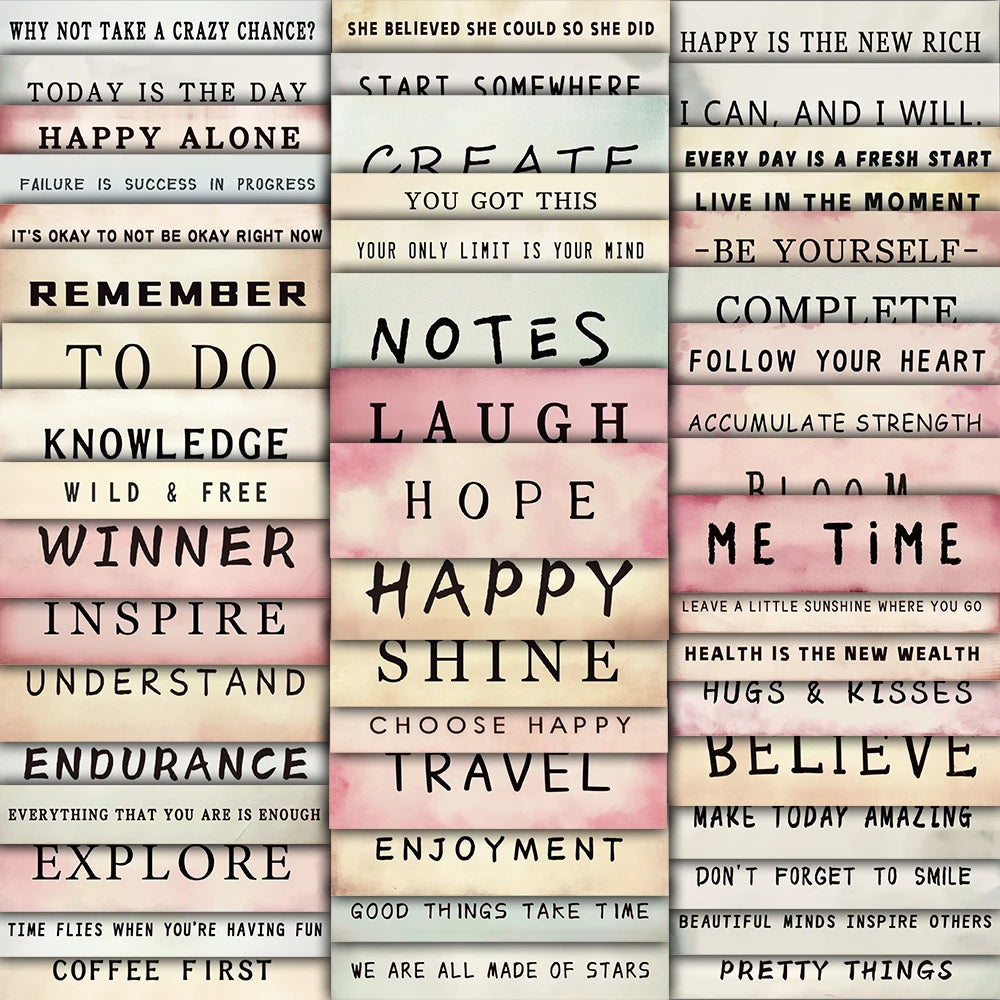 WHY NOT TAKE A CRAZY CHANCE?
TODAY IS THE DAY
HAPPY ALONE
FAILURE IS SUCCESS IN PROGRESS
IT'S OKAY TO NOT BE OKAY RIGHT NOW
REMEMBER
TO DO
KNOWLEDGE
WILD & FREE
WINNER
INSPIRE
UNDERSTAND
ENDURANCE
EVERYTHING THAT YOU ARE IS ENOUGH
EXPLORE
TIME FLIES WHEN YOU'RE HAVING FUN
COFFEE FIRST
SHE BELIEVED SHE COULD SO SHE DID
START SOMEWHERE
CREATE
YOU GOT THIS
YOUR ONLY LIMIT IS YOUR MIND
NOTES
LAUGH
HOPE
HAPPY
SHINE
CHOOSE HAPPY
TRAVEL
ENJOYMENT
GOOD THINGS TAKE TIME
WE ARE ALL MADE OF STARS
HAPPY IS THE NEW RICH
I CAN, AND I WILL.
EVERY DAY IS A FRESH START
LIVE IN THE MOMENT
-BE YOURSELF-
COMPLETE
FOLLOW YOUR HEART
ACCUMULATE STRENGTH
BLOOM
ME TiME
LEAVE A LITTLE SUNSHINE WHERE YOU GO
HEALTH IS THE NEW WEALTH
HUGS & KISSES
BELIEVE
MAKE TODAY AMAZING
DON'T FORGET TO SMILE
BEAUTIFUL MINDS INSPIRE OTHERS
PRETTY THINGS